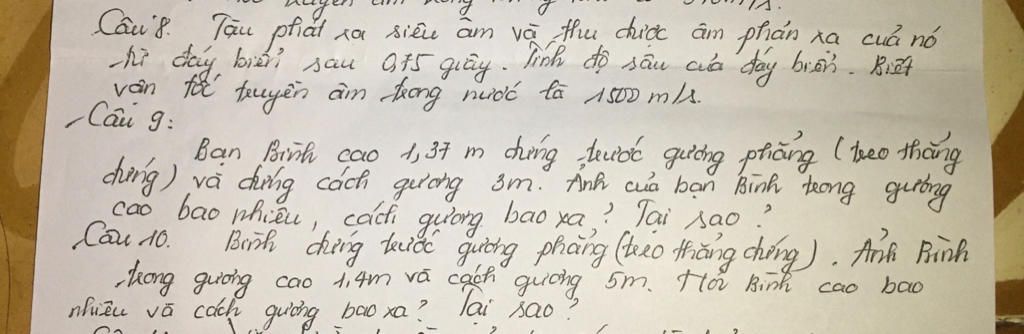 Câu 8. Tàu phát ra siêu âm và thu được âm phản xạ của nó
từ đáy biển sau 0,75 giây. Tính độ sâu của đáy biển. Biết
vận tốc truyền âm trong nước là 1500 m/s.
Câu 9:
Bạn Bình cao 1,37 m đứng trước gương phẳng (treo thẳng
đứng) và đứng cách gương 3m. Ảnh của bạn Bình trong gương
cao bao nhiêu, cách gương bao xa? Tại sao?
Câu 10. Bình đứng trước gương phẳng (treo thẳng đứng). Ảnh Bình
trong gương cao 1,4m và cách gương 5m. Hỏi Bình cao bao
nhiêu và cách gương bao xa? Tại sao?